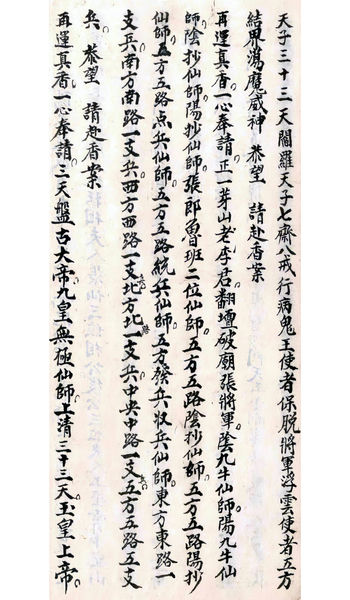 天子三十三天閻羅天子七齋八戒行病鬼王使者保脫將軍浮雲使者五方
結界蕩魔威神 恭望 請赴香案
再運真香一心奉請正一茅山老李君翻壇破廟張將軍陰九牛仙師陽九牛仙
師陰抄仙師陽抄仙師張郎魯班二位仙師五方五路陰抄仙師五方五路陽抄
仙師五方五路点兵仙師五方五路統兵仙師五方發兵收兵仙師東方東路一
支兵南方南路一支兵西方西路一支兵北方北路一支兵中央中路一支兵五方五路五支
兵 恭望 請赴香案
再運真香一心奉請三天盤古大帝九皇無極仙師上清三十三天玉皇上帝